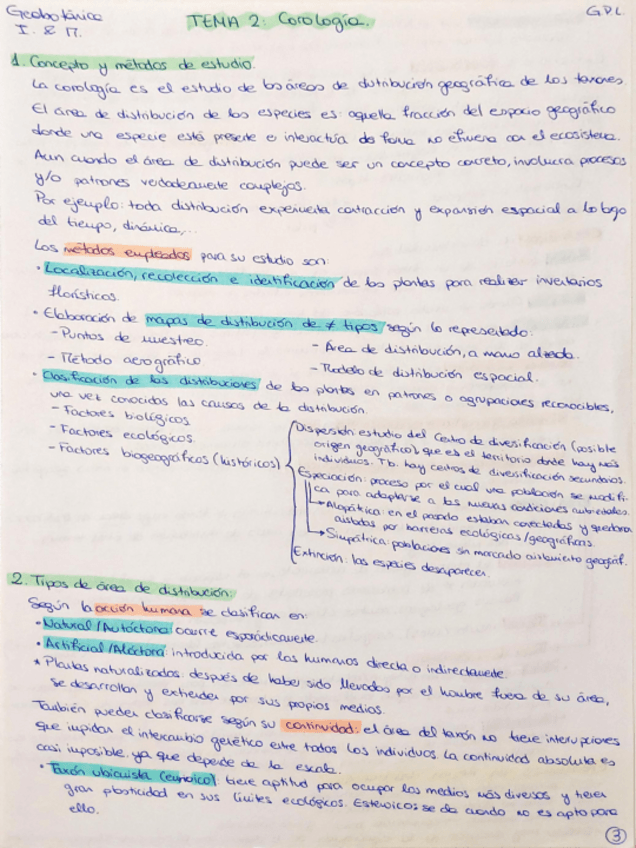 Geobotánica
I. & M.
TEMA 2: Corología.
G.P.L.
1. Concepto y métodos de estudio:
La corología es el estudio de las áreas de distribución geográfica de los taxones.
El área de distribución de las especies es: aquella fracción del espacio geográfico
donde una especie está presente e interactúa de forma no efímera con el ecosistema.
Aun cuando el área de distribución puede ser un concepto concreto, involucra procesos
y/o patrones verdaderamente complejos.
Por ejemplo: toda distribución experimenta contracción y expansión espacial a lo largo
del tiempo, dinámica,...
Los métodos empleados para su estudio son:
· Localización, recolección e identificación de las plantas para realizar inventarios
florísticos.
· Elaboración de mapas de distribución de ≠ tipos según lo representado:
- Puntos de muestreo.
- Área de distribución, a mano alzada.
- Método aerográfico
- Modelo de distribución espacial.
· Clasificación de las distribuciones de las plantas en patrones o agrupaciones reconocibles,
una vez conocidas las causas de la distribución.
- Factores biológicos
- Factores ecológicos.
- Factores biogeográficos (históricos)
Dispersión: estudio del Centro de diversificación (posible
origen geográfico), que es el territorio donde hay más
individuos. Tb. hay centros de diversificación secundarios.
Especiación: proceso por el cual una población se modifi-
ca para adaptarse a las nuevas condiciones ambientales.
→ Alopátrica: en el pasado estaban conectadas y quedaron
aisladas por barreras ecológicas/geográficas.
→ Simpátrica: poblaciones sin marcado aislamiento geográf.
Extinción: las especies desaparecen.
2. Tipos de área de distribución:
Según la acción humana se clasifican en:
· Natural/Autóctona: ocurre esporádicamente.
· Artificial/Alóctona: introducida por los humanos directa o indirectamente.
* Plantas naturalizadas: después de haber sido llevadas por el hombre fuera de su área,
se desarrollan y extienden por sus propios medios.
También pueden clasificarse según su continuidad: el área del taxón no tiene interrupciones
que impidan el intercambio genético entre todos los individuos. La continuidad absoluta es
casi imposible, ya que depende de la escala.
· Taxón ubicuista (eurioico): tiene aptitud para ocupar los medios más diversos y tienen
gran plasticidad en sus límites ecológicos. Estenoicos se da cuando no es apto para
ello.
3